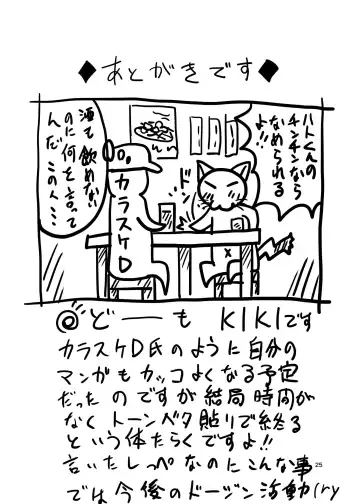 ◆あとがきです◆
ハトくんの
チンチンなら
なめられる
よ!!
酒も飲めない
のに何を言って
んだこの人…
ド
カラスケD
◎どーも KIKIです
カラスケD氏のように自分の
マンガもカッコよくなる予定
だったのですが結局時間が
なくトーンベタ貼りで終る
という体たらくですよ!!
言いたしっぺなのにこんな事
では今後のドージン活動(ry
25